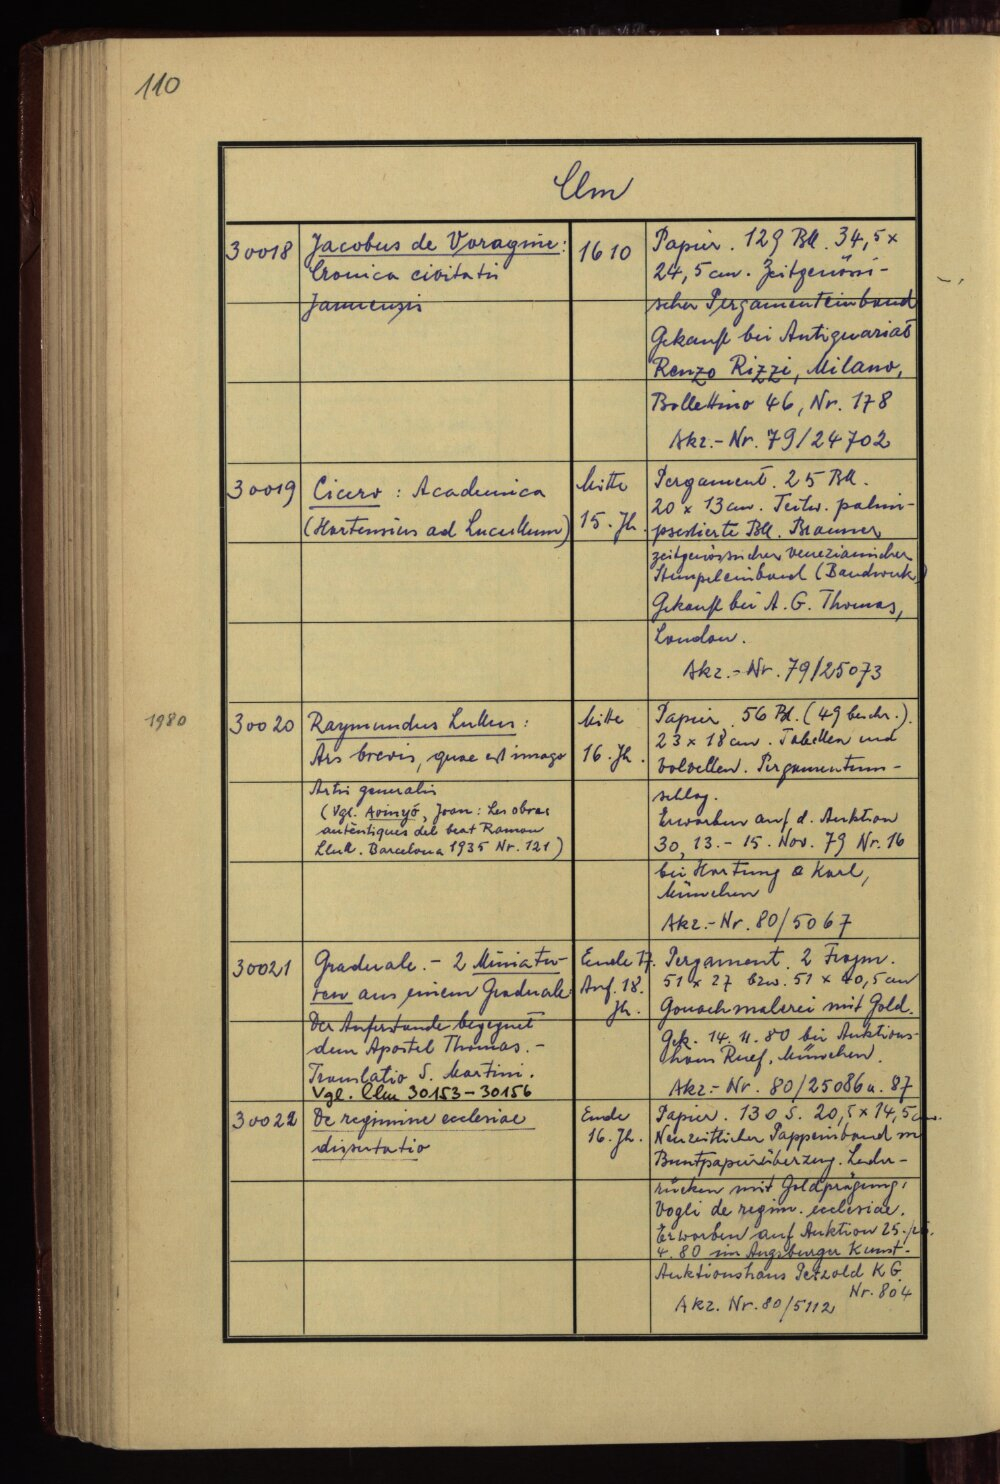 110
Clm
30018
Jacobus de Voragine:
Cronica civitatis
Januensis
1610
Papier. 129 Bll. 34,5 x
24,5 cm. Zeitgenössi-
scher Pergamenteinband
Gekauft bei Antiquariat
Renzo Rizzi, Milano,
Bollettino 46, Nr. 178
Akz.-Nr. 79/24702
30019
Cicero: Academica
(Hortensius ad Lucullum)
Mitte
15. Jh.
Pergament. 25 Bll.
20 x 13 cm. Teilw. palim-
psestierte Bll. Brauner
zeitgenössischer venezianischer
Stempeleinband (Bandwerk)
Gekauft bei A. G. Thomas,
London.
Akz.-Nr. 79/25073
1980
30020
Raymundus Lullus:
Ars brevis, quae est imago
Artis generalis
(Vgl. Avinyó, Joan: Les obras
autèntiques del beat Ramon
Llull. Barcelona 1935 Nr. 121)
Mitte
16. Jh.
Papier. 56 Bl. (49 beschr.).
23 x 18 cm. Tabellen und
Volvellen. Pergamentum-
schlag.
Erworben auf d. Auktion
30, 13.-15. Nov. 79 Nr. 16
bei Hartung & Karl,
München
Akz.-Nr. 80/5067
30021
Graduale. - 2 Miniatu-
ren aus einem Graduale:
Der Auferstande begegnet
dem Apostel Thomas. -
Translatio S. Martini.
Vgl. Clm 30153-30156
Ende 17.
Anf. 18.
Jh.
Pergament. 2 Fragm.
51 x 27 bzw. 51 x 40,5 cm
Gouachmalerei mit Gold.
Gek. 14. 4. 80 bei Auktions-
haus Ruef, München.
Akz.-Nr. 80/25086 u. 87
30022
De regimine ecclesiae
dissertatio
Ende
16. Jh.
Papier. 130 S. 20,5 x 14,5 cm.
Neuzeitlicher Pappeinband m
Buntpapierüberzug. Leder-
rücken mit Goldprägung:
Vogli de regim. ecclesiae.
Erworben auf Auktion 25./26.
4. 80 im Augsburger Kunst-
Auktionshaus Petzold KG
Nr. 804
Akz. Nr. 80/5112